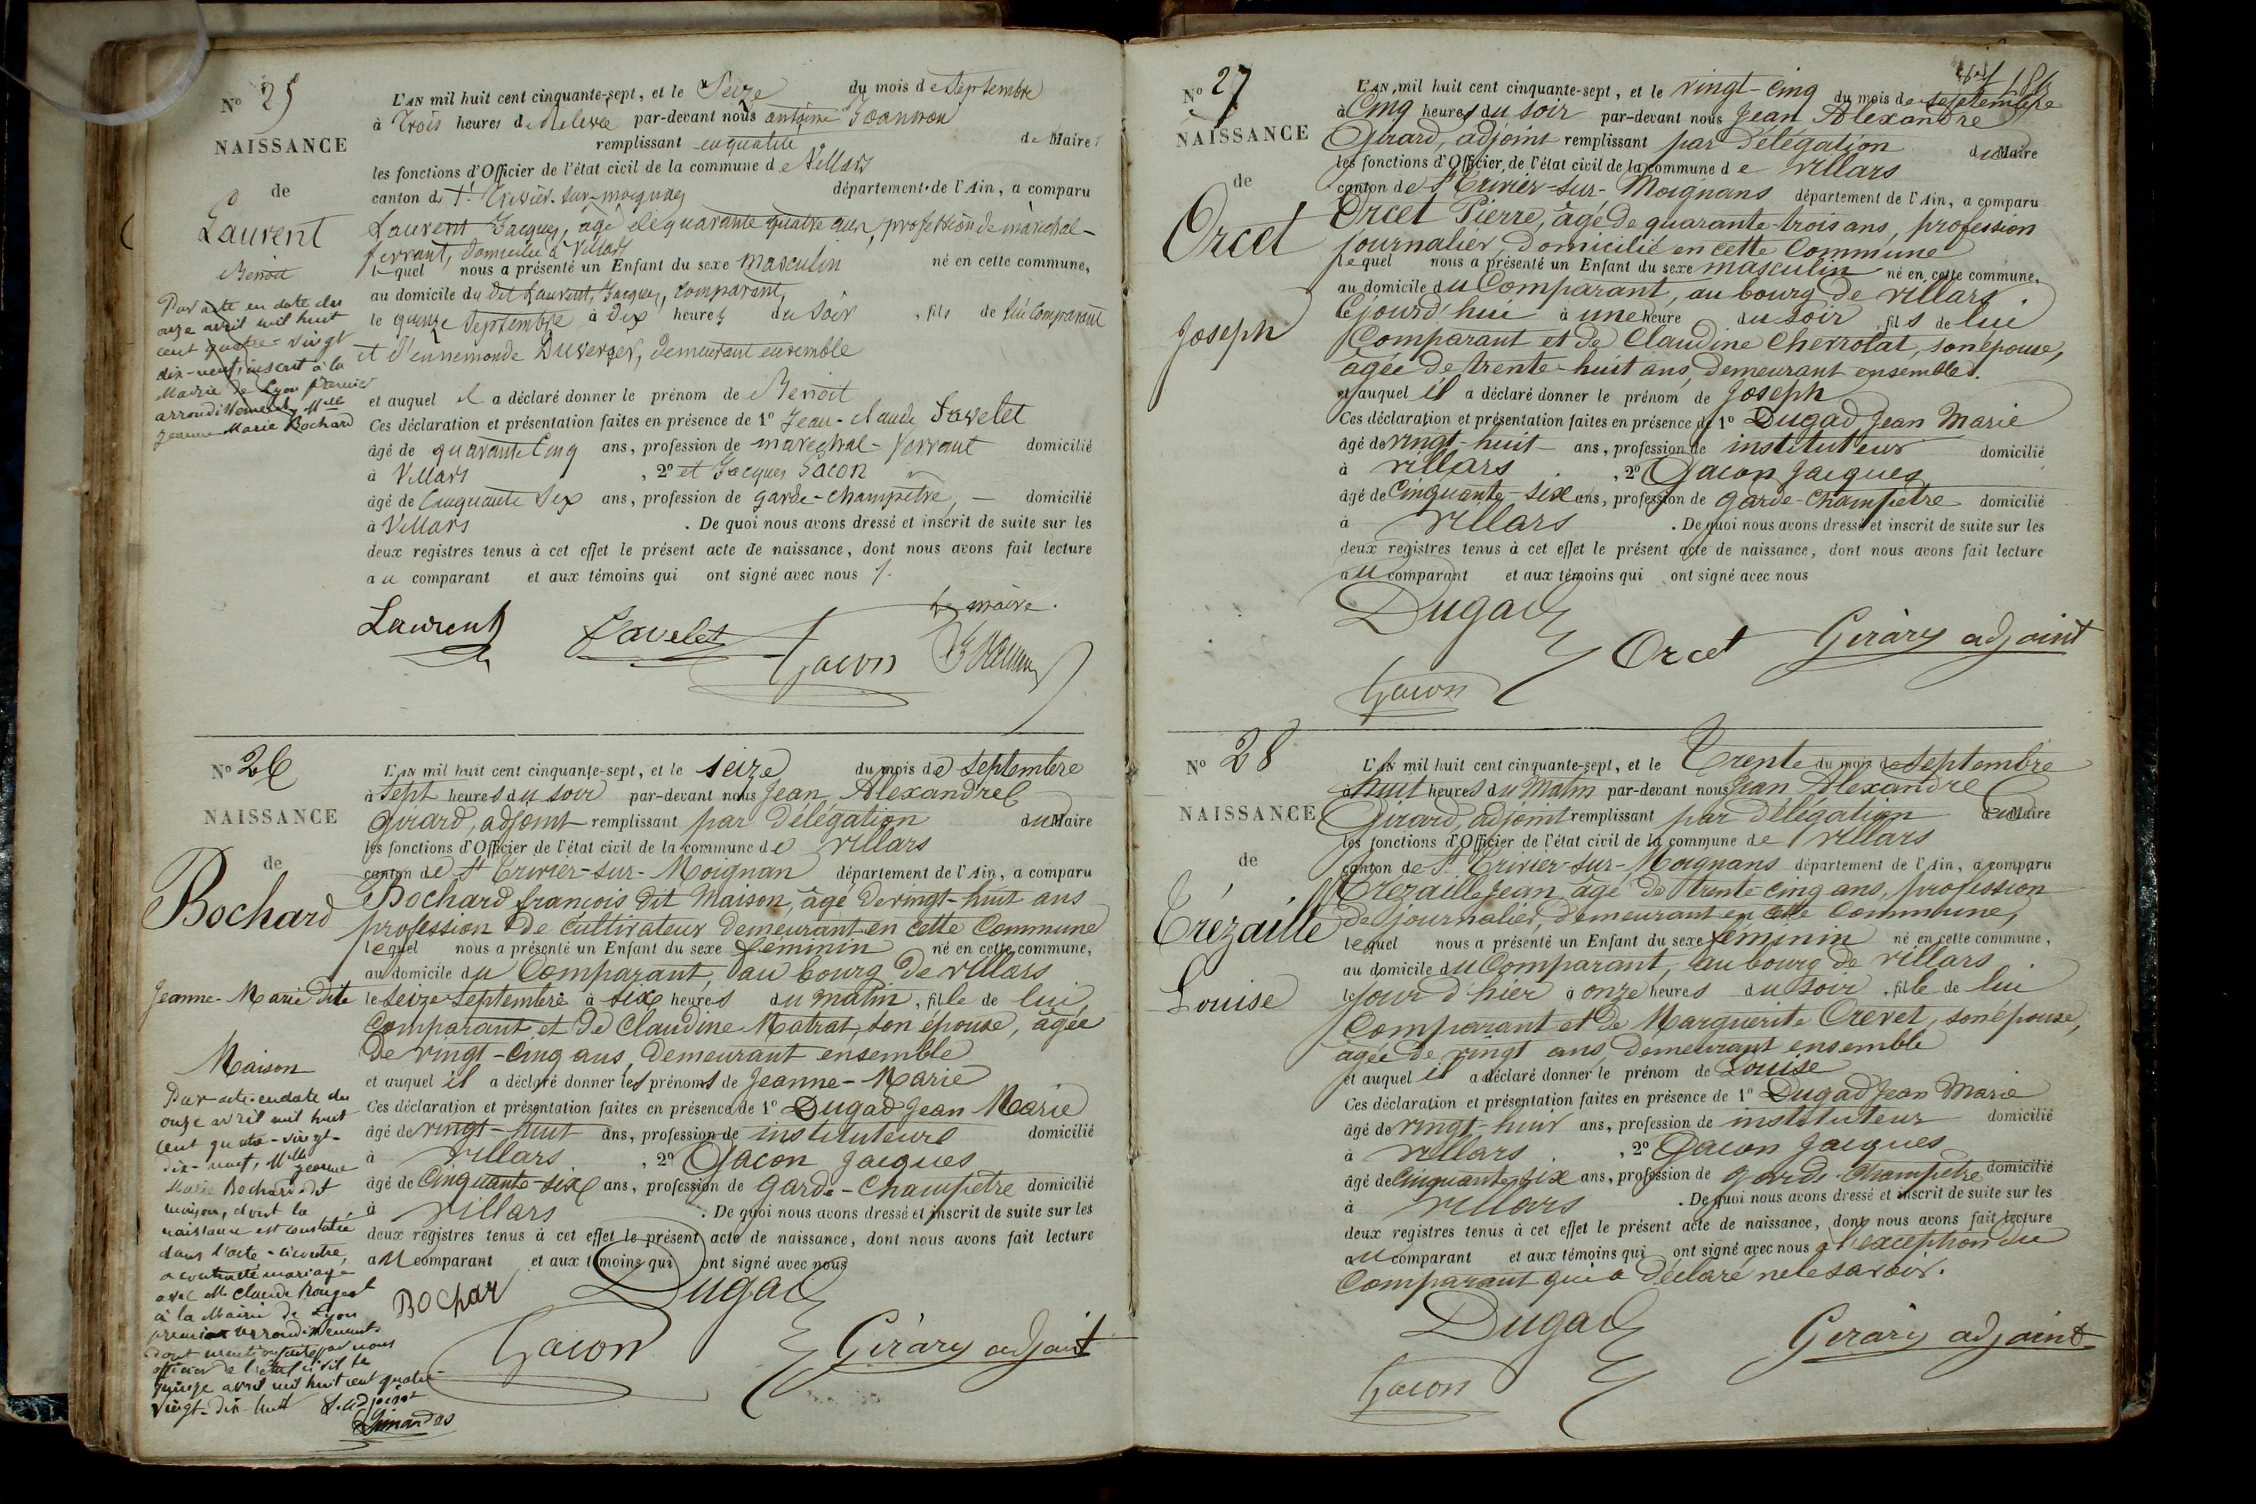 No 25
NAISSANCE
de
Laurent
Benoit
Par acte en date du
onze avril mil huit
cent quatre-vingt
dix-neuf, inscrit à la
Mairie de Lyon premier
arrondissement, Mlle
Jeanne Marie Bochard
L'AN mil huit cent cinquante-sept, et le Seize du mois de Septembre
à Trois heures de Relevée par-devant nous antoine Joannon
remplissant en qualité de Maire
les fonctions d'Officier de l'état civil de la commune de Villars
canton de St. Trivier-sur-moignans département de l'Ain, a comparu
Laurent Jacques, âgé de quarante quatre ans, profession de maréchal-
ferrant, domicilié à Villars
lequel nous a présenté un Enfant du sexe masculin né en cette commune,
au domicile du dit Laurent, Jacques, comparant,
le quinze Septembre à Dix heures du Soir, fils de lui Comparant
et d'ennemonde Duverger, demeurant ensemble
et auquel il a déclaré donner le prénom de Benoit
Ces déclaration et présentation faites en présence de 1º Jean-claude Favelet
âgé de quarante Cinq ans, profession de marechal-ferrant domicilié
à Villars, 2º et Jacques Gacon
âgé de Cinquante Six ans, profession de garde-champêtre, — domicilié
à Villars. De quoi nous avons dressé et inscrit de suite sur les
deux registres tenus à cet effet le présent acte de naissance, dont nous avons fait lecture
au comparant et aux témoins qui ont signé avec nous
Le maire.
Laurent Favelet Gacon
No 26
NAISSANCE
de
Bochard
Jeanne-Marie dite
Maison
Par acte en date du
onze avril mil huit
cent quatre-vingt-
dix-neuf, Mlle Jeanne
Marie Bochard dit
maison, dont la
naissance est constatée
dans l'acte ci-contre,
a contracté mariage
avec M. Claude Rouget
à la Mairie de Lyon
premier arrondissement.
dont mention faite par nous
officier de l'état civil le
quinze avril mil huit cent quatre-
vingt-dix-neuf L'adjoint
L'AN mil huit cent cinquante-sept, et le seize du mois de septembre
à sept heures du soir par-devant nous Jean Alexandre
Girard, adjoint remplissant par délégation du Maire
les fonctions d'Officier de l'état civil de la commune de villars
canton de St Trivier-sur-Moignan département de l'Ain, a comparu
Bochard françois dit Maison, âgé de vingt-huit ans
profession de cultivateur demeurant en cette Commune
lequel nous a présenté un Enfant du sexe féminin né en cette commune,
au domicile du Comparant, au bourg de villars
le seize septembre à six heures du matin, fille de lui
Comparant et de Claudine Matrat, son épouse, âgée
de vingt-cinq ans, demeurant ensemble
et auquel il a déclaré donner les prénoms de Jeanne-Marie
Ces déclaration et présentation faites en présence de 1º Dugad Jean Marie
âgé de vingt-huit ans, profession de instituteur domicilié
à villars, 2º Gacon Jacques
âgé de Cinquante-six ans, profession de Garde-Champêtre domicilié
à villars. De quoi nous avons dressé et inscrit de suite sur les
deux registres tenus à cet effet le présent acte de naissance, dont nous avons fait lecture
au comparant et aux témoins qui ont signé avec nous
Bochar Dugad
Gacon Girard adjoint
No 27
NAISSANCE
de
Orcet
Joseph
L'AN mil huit cent cinquante-sept, et le vingt-cinq du mois de septembre
à Cinq heures du soir par-devant nous Jean Alexandre
Girard, adjoint remplissant par délégation du Maire
les fonctions d'Officier de l'état civil de la commune de villars
canton de St Trivier-sur-Moignans département de l'Ain, a comparu
Orcet Pierre, âgé de quarante-trois ans, profession
journalier domicilié en cette Commune
lequel nous a présenté un Enfant du sexe masculin né en cette commune,
au domicile du Comparant, au bourg de villars.
Cejourd'hui à une heure du soir, fils de lui
Comparant et de Claudine Cherrolat, son épouse,
âgée de trente-huit ans, demeurant ensemble.
et auquel il a déclaré donner le prénom de Joseph
Ces déclaration et présentation faites en présence de 1º Dugad Jean Marie
âgé de vingt-huit ans, profession de instituteur domicilié
à villars, 2º Gacon Jacques
âgé de cinquante-six ans, profession de garde-champêtre domicilié
à villars. De quoi nous avons dressé et inscrit de suite sur les
deux registres tenus à cet effet le présent acte de naissance, dont nous avons fait lecture
au comparant et aux témoins qui ont signé avec nous
Dugad
Orcet Girard adjoint
Gacon
No 28
NAISSANCE
de
Trézaille
Louise
L'AN mil huit cent cinquante-sept, et le Trente du mois de septembre
à huit heures du Matin par-devant nous Jean Alexandre
Girard, adjoint remplissant par délégation du Maire
les fonctions d'Officier de l'état civil de la commune de villars
canton de St Trivier-sur-Moignans département de l'Ain, a comparu
Trézaille Jean âgé de trente-cinq ans, profession
de journalier, demeurant en cette Commune,
lequel nous a présenté un Enfant du sexe féminin né en cette commune,
au domicile du Comparant, au bourg de villars
le jour d'hier à onze heures du soir, fille de lui
Comparant et de Marguerite Crevet, son épouse,
âgée de vingt ans, demeurant ensemble
et auquel il a déclaré donner le prénom de Louise
Ces déclaration et présentation faites en présence de 1º Dugad Jean Marie
âgé de vingt-huit ans, profession de instituteur domicilié
à villars, 2º Gacon Jacques
âgé de Cinquante six ans, profession de garde-champêtre domicilié
à villars. De quoi nous avons dressé et inscrit de suite sur les
deux registres tenus à cet effet le présent acte de naissance, dont nous avons fait lecture
au comparant et aux témoins qui ont signé avec nous à l'exception du
Comparant qui a déclaré ne le savoir.
Dugad
Gacon Girard adjoint